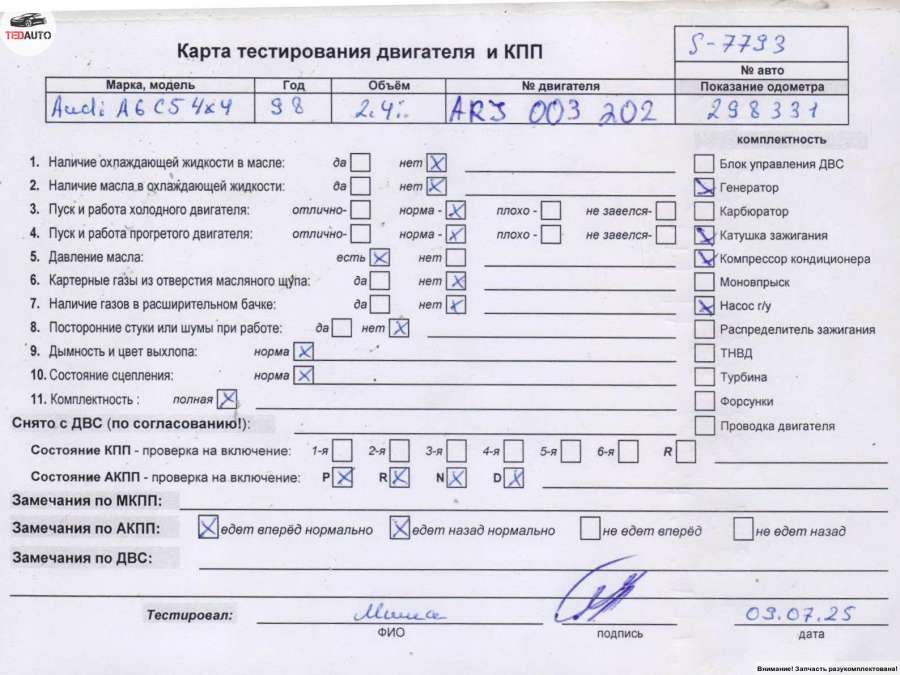 TEDAUTO
Карта тестирования двигателя и КПП
S-7793
№ авто
Марка, модель Год Объём № двигателя Показание одометра
Audi A6 C5 4x4 98 2.4i ARJ 003 202 298331
комплектность
1. Наличие охлаждающей жидкости в масле: да нет Блок управления ДВС
2. Наличие масла в охлаждающей жидкости: да нет Генератор
3. Пуск и работа холодного двигателя: отлично- норма - плохо - не завелся- Карбюратор
4. Пуск и работа прогретого двигателя: отлично- норма - плохо - не завелся- Катушка зажигания
5. Давление масла: есть нет Компрессор кондиционера
6. Картерные газы из отверстия масляного щупа: да нет Моновпрыск
7. Наличие газов в расширительном бачке: да нет Насос г/у
8. Посторонние стуки или шумы при работе: да нет Распределитель зажигания
9. Дымность и цвет выхлопа: норма ТНВД
10. Состояние сцепления: норма Турбина
11. Комплектность : полная Форсунки
Снято с ДВС (по согласованию!): Проводка двигателя
Состояние КПП - проверка на включение: 1-я 2-я 3-я 4-я 5-я 6-я R
Состояние АКПП - проверка на включение: P R N D
Замечания по МКПП:
Замечания по АКПП: едет вперёд нормально едет назад нормально не едет вперёд не едет назад
Замечания по ДВС:
Тестировал: Миша 09.07.25
ФИО подпись дата
Внимание! Запчасть разукомплектована!